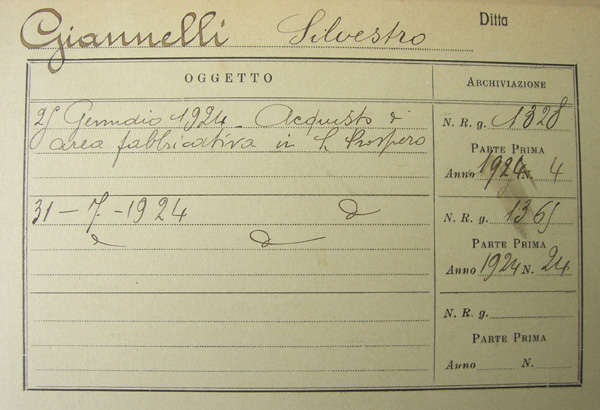 Giannelli Silvestro Ditta
OGGETTO ARCHIVIAZIONE
25 Gennaio 1924 - Acquisto di N. R. g. 1328
area fabbricativa in S. Prospero PARTE PRIMA
Anno 1924 N. 4
31-7-1924 N. R. g. 1365
PARTE PRIMA
Anno 1924 N. 24
N. R. g.
PARTE PRIMA
Anno N.